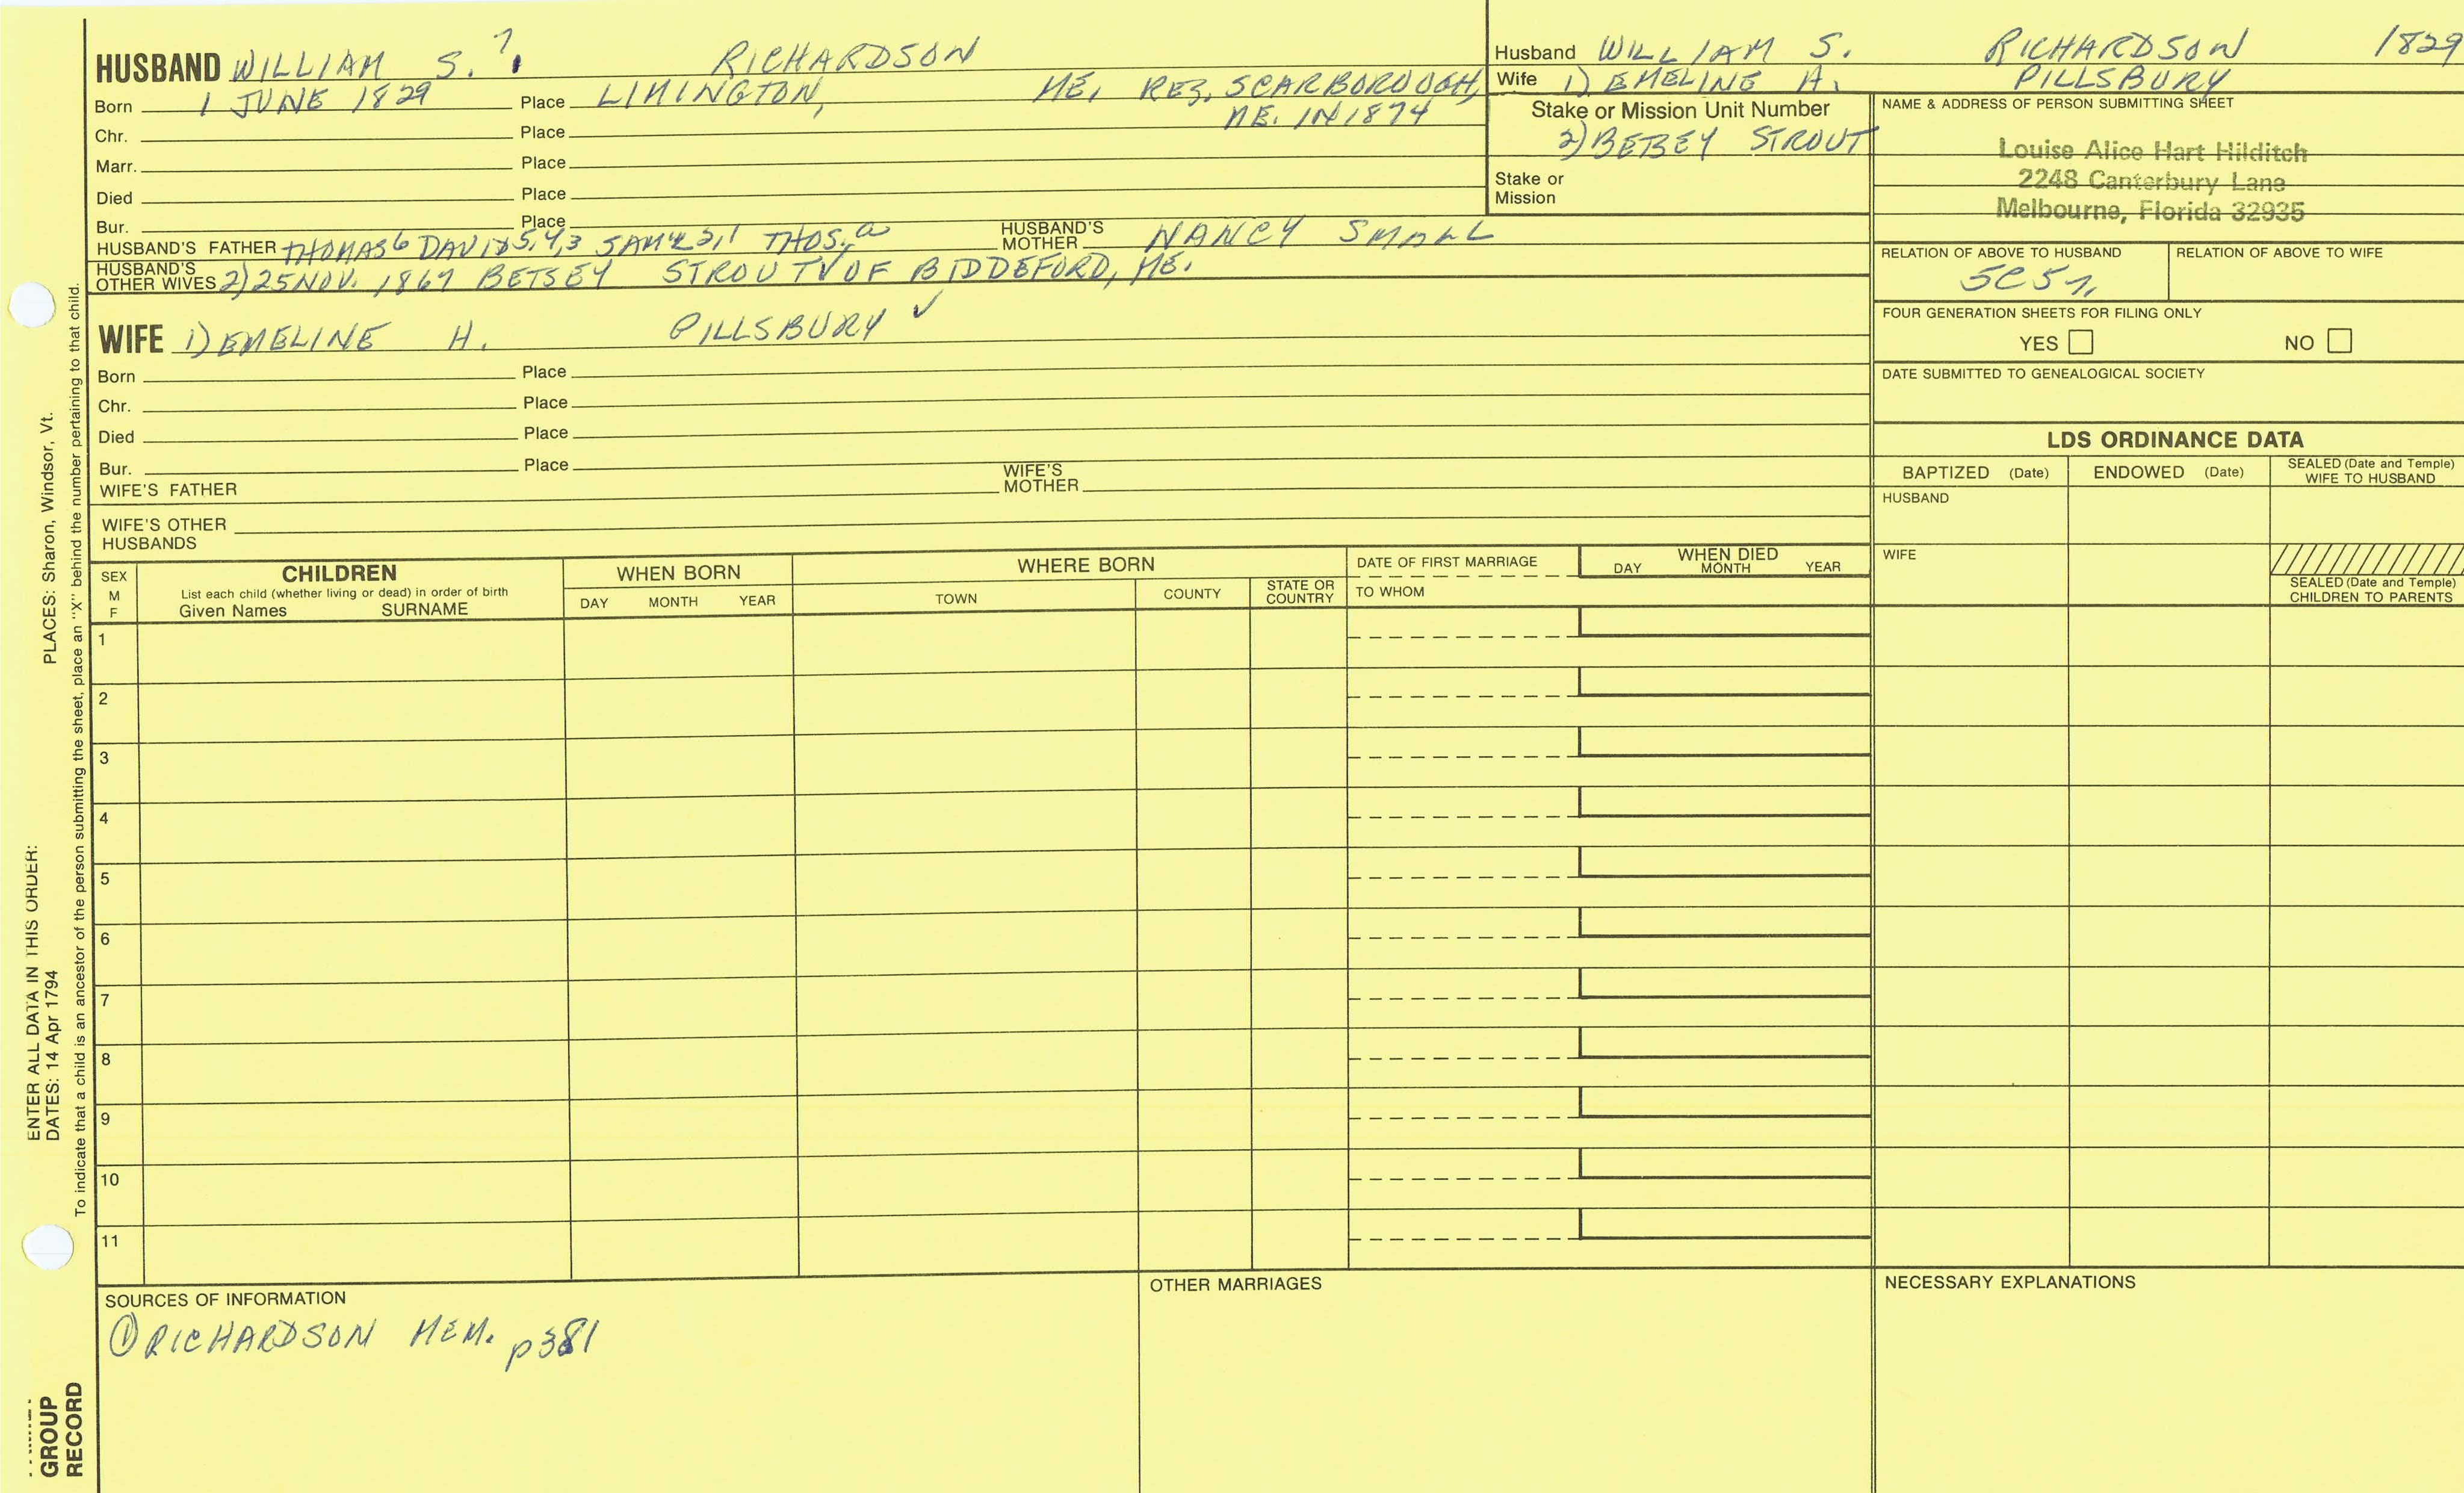 HUSBAND WILLIAM S.7. RICHARDSON
Born 1 JUNE 1829 Place LIMINGTON, ME, RES. SCARBOROUGH,
ME. IN 1874
Chr. Place
Marr. Place
Died Place
Bur. Place
HUSBAND'S FATHER THOMAS6 DAVID5,4,3 SAML2,1 THOS.a HUSBAND'S MOTHER NANCY SMALL
HUSBAND'S OTHER WIVES 2) 25 NOV. 1867 BETSEY STROUT V OF BIDDEFORD, ME.
WIFE 1) EMELINE H. PILLSBURY ✓
Born Place
Chr. Place
Died Place
Bur. Place
WIFE'S FATHER WIFE'S MOTHER
WIFE'S OTHER HUSBANDS
Husband WILLIAM S. RICHARDSON 1829
Wife 1) EMELINE H. PILLSBURY
Stake or Mission Unit Number
2) BETSEY STROUT
Stake or
Mission
NAME & ADDRESS OF PERSON SUBMITTING SHEET
Louise Alice Hart Hilditch
2248 Canterbury Lane
Melbourne, Florida 32935
RELATION OF ABOVE TO HUSBAND RELATION OF ABOVE TO WIFE
5C5r,
FOUR GENERATION SHEETS FOR FILING ONLY
YES NO
DATE SUBMITTED TO GENEALOGICAL SOCIETY
LDS ORDINANCE DATA
BAPTIZED (Date) ENDOWED (Date) SEALED (Date and Temple) WIFE TO HUSBAND
HUSBAND
WIFE
SEALED (Date and Temple) CHILDREN TO PARENTS
SEX M F
CHILDREN
List each child (whether living or dead) in order of birth
Given Names SURNAME
WHEN BORN
DAY MONTH YEAR
WHERE BORN
TOWN COUNTY STATE OR COUNTRY
DATE OF FIRST MARRIAGE
TO WHOM
WHEN DIED
DAY MONTH YEAR
1
2
3
4
5
6
7
8
9
10
11
SOURCES OF INFORMATION
① RICHARDSON MEM. p381
OTHER MARRIAGES
NECESSARY EXPLANATIONS
PLACES: Sharon, Windsor, Vt.
ENTER ALL DATA IN THIS ORDER:
DATES: 14 Apr 1794
To indicate that a child is an ancestor of the person submitting the sheet, place an "X" behind the number pertaining to that child.
GROUP
RECORD